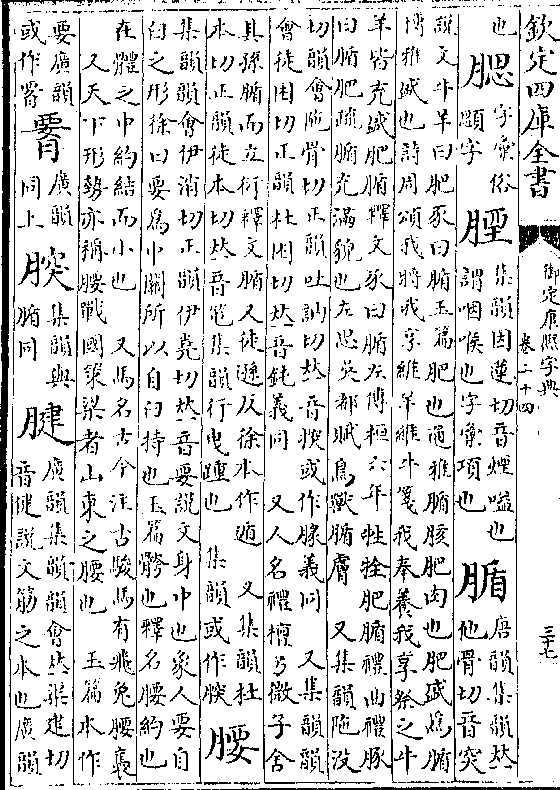 欽定四庫全書
御定康熙字典
卷二十四
三十七
也
腮
字彙俗
顋字
集韻因蓮切音煙嗌也
謂咽喉也字彙項也
腯
唐韻集韻𠀤
他骨切音突
說文牛羊曰肥豕曰腯玉篇肥也通雅腯胲肥肉也肥盛爲腯
博雅盛也詩周頌我將我享維羊維牛箋我奉養我享祭之牛
羊皆充盛肥腯釋文豕曰腯左傳桓六年牲牷肥腯禮曲禮豚
曰腯肥疏腯充滿貌也左思吳都賦鳥獸腯膚 又集韻陁沒
切韻會陁骨切正韻吐訥切𠀤音揬或作腞義同 又集韻韻
會徒困切正韻杜困切𠀤音鈍義同 又人名禮檀弓微子舍
其孫腯而立衍釋文腯又徒遜反徐本作遁 又集韻杜
本切正韻徒本切𠀤音笔集韻行曳踵也 集韻或作腞
腰
集韻韻會伊消切正韻伊堯切𠀤音要說文身中也象人要自
臼之形徐曰要爲中關所以自臼持也玉篇骻也釋名腰約也
在體之中約結而小也 又馬名古今注古駿馬有飛兔腰褭
又天下形勢亦稱腰戰國策梁者山東之腰也 玉篇本作
要廣韻
或作
廣韻
同上
集韻與
腯同
腱
廣韻集韻韻會𠀤渠建切
音健說文筋之本也廣韻